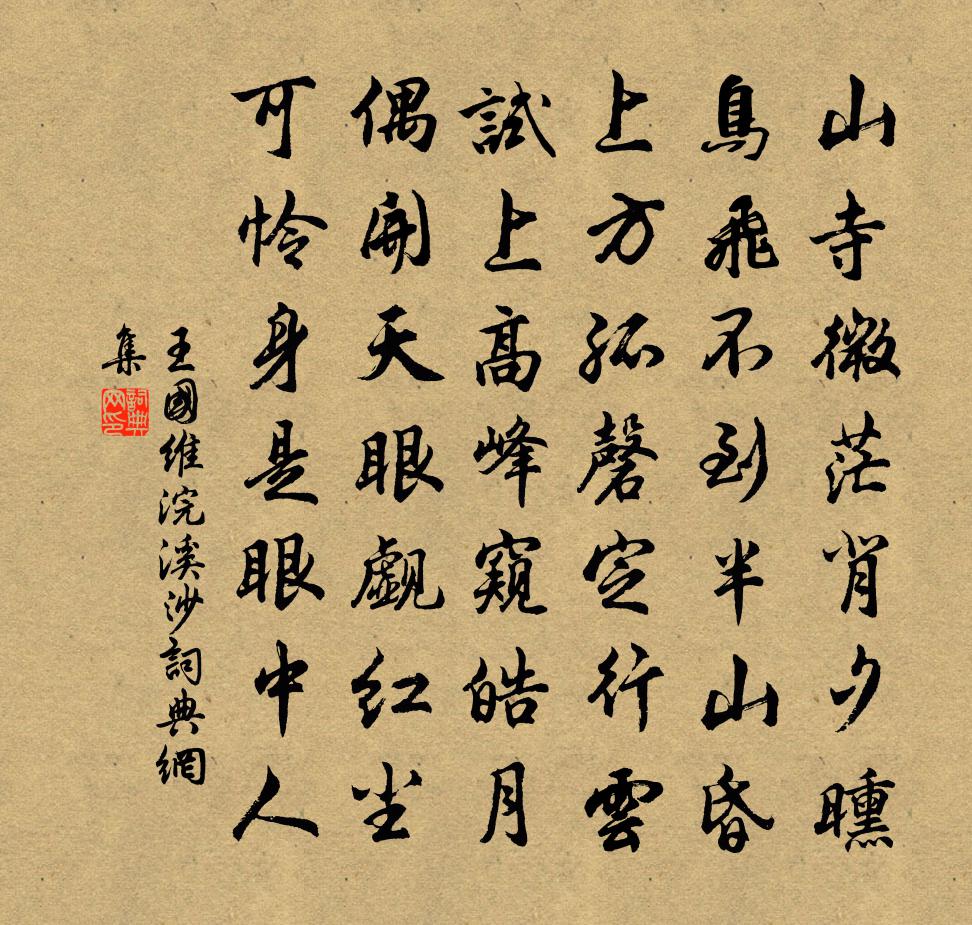 山寺微茫背夕曛
鳥飛不到半山昏
上方孤磬定行雲
試上高峰窺皓月
偶開天眼覷紅尘
可怜身是眼中人
王國維浣溪沙詞典網
集
詞典
网印